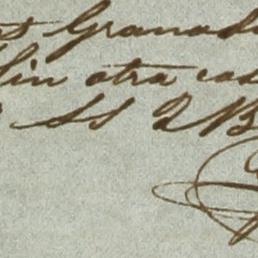 Granad
Sin otra cos
SS Q B